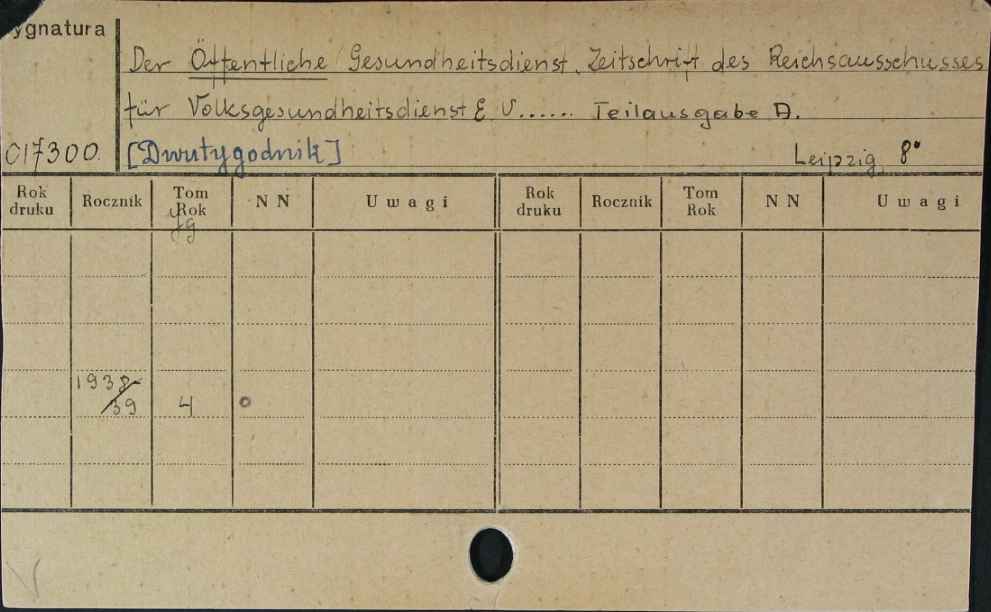 ygnatura
Der Öffentliche Gesundheitsdienst. Zeitschrift des Reichsausschusses
für Volksgesundheitsdienst E V...... Teilausgabe A.
C17300. [Dwutygodnik] Leipzig, 8°
Rok druku Rocznik Tom Rok Jg N N Uwagi Rok druku Rocznik Tom Rok N N Uwagi
1938-
/39 4 o